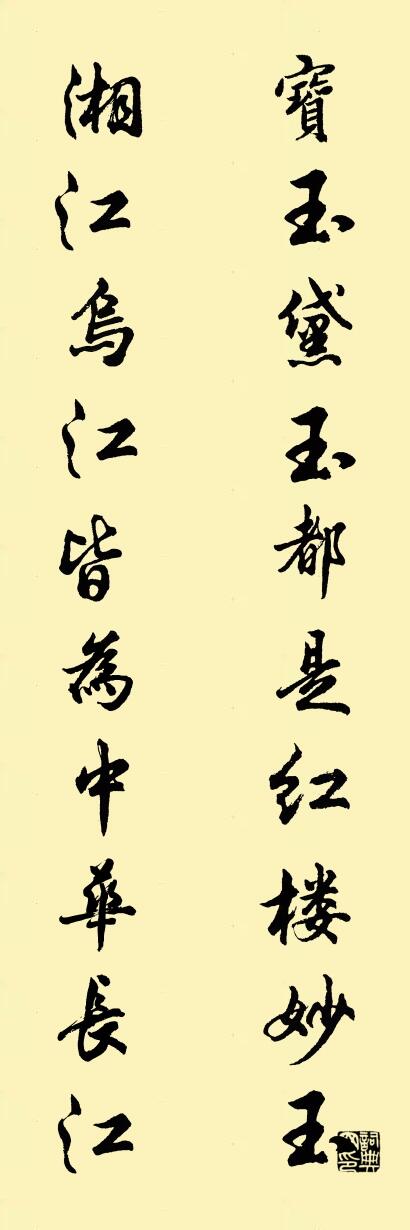 寶玉黛玉都是红楼妙玉
湘江烏江皆為中華長江